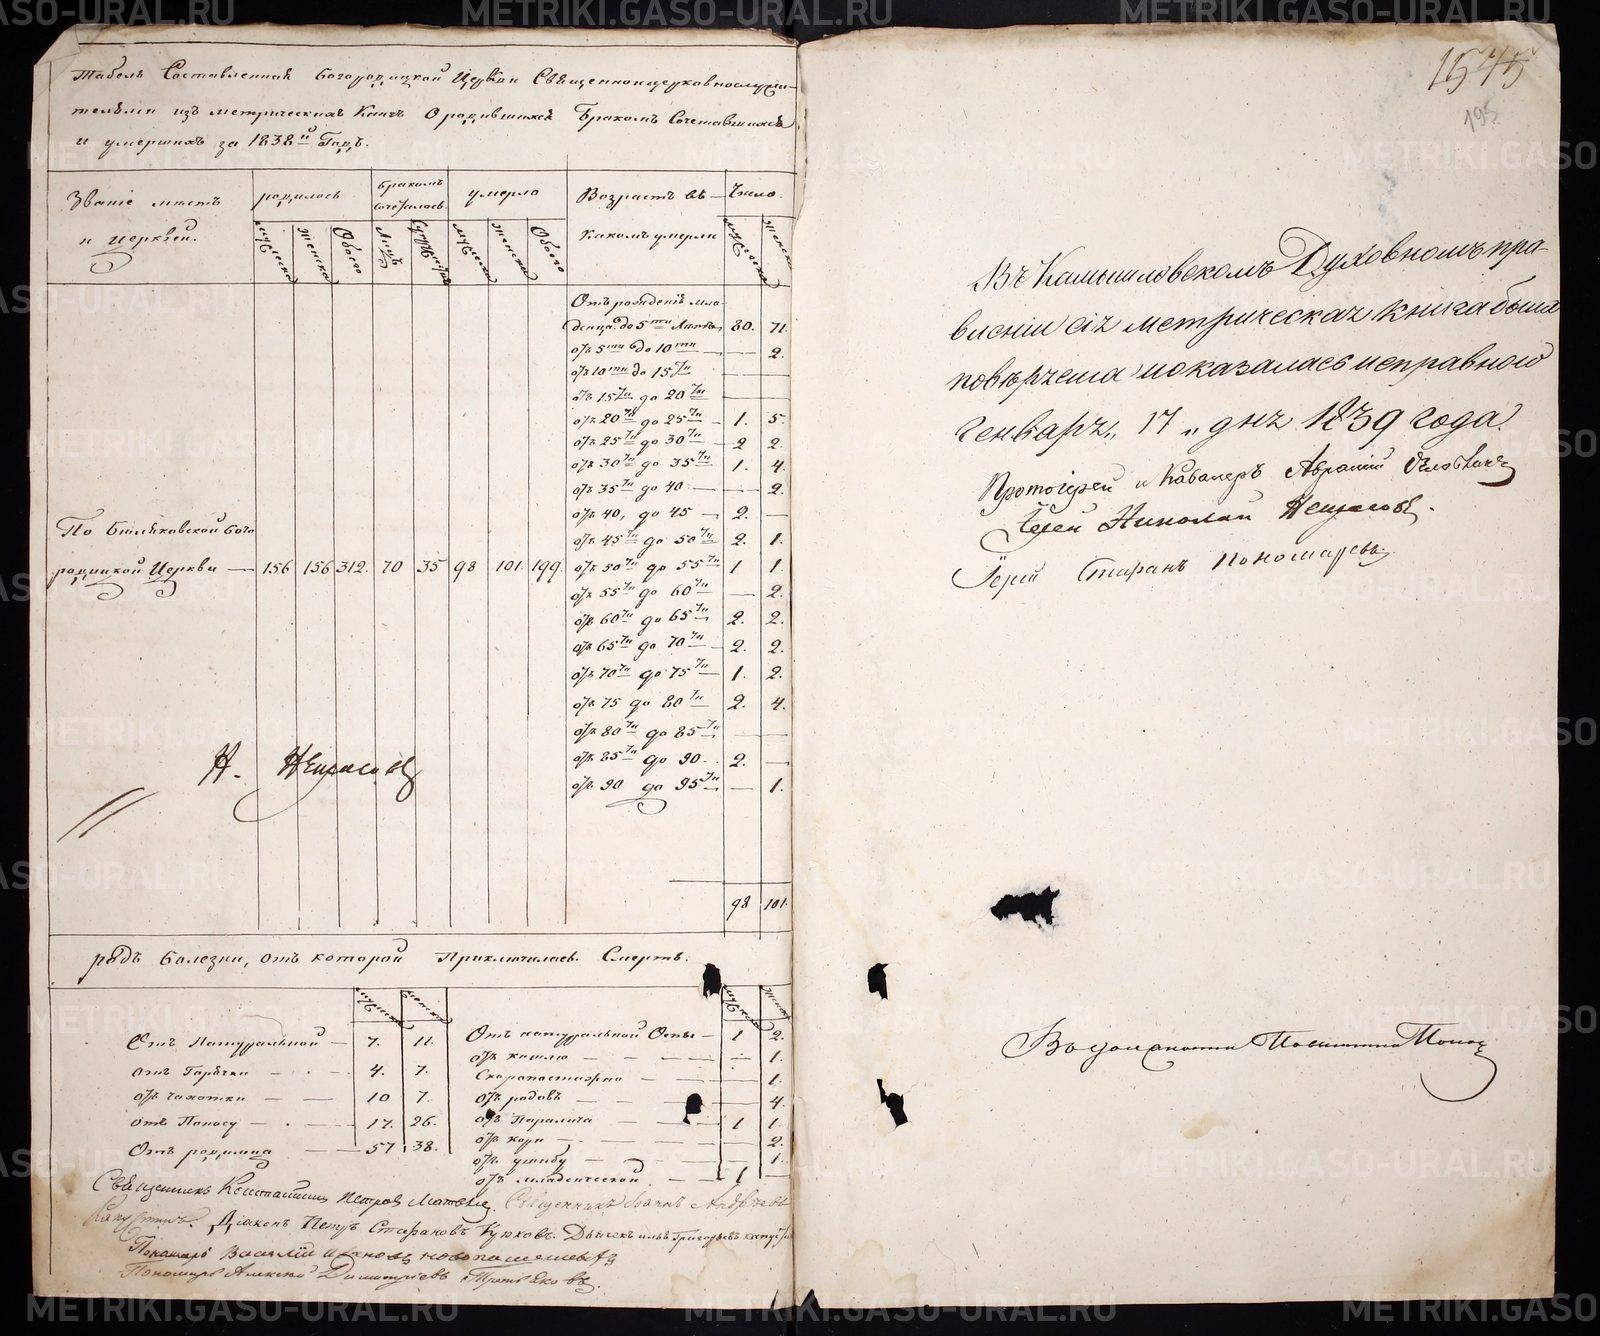 Табель Составленная Богородицкой Церкви Священноицерковнослужи-
телями изъ метрическихъ Книгъ О родившихся Бракомъ Сочетавшихся
и умершихъ за 1838й Годъ.
Званіе мѣстъ
и церквей.
родилось
бракомъ
сочеталось
умерло
Возрастъ въ
какомъ умерли
Число
мужеска
женска
Обоего
Лицъ
Супружествъ
мужеска
женска
Обоего
мужеска
женска
Отъ рожденія мла
денца до 5ти Лѣтъ 80. 71.
отъ 5ти до 10ти — — 2.
отъ 10ти до 15ти — —
отъ 15ти до 20ти — —
отъ 20ти до 25ти — 1. 5.
отъ 25ти до 30ти — 2 2.
отъ 30ти до 35ти 1. 4.
отъ 35ти до 40 — — 2.
отъ 40, до 45 — 2. —
отъ 45ти до 50ти 2. 1.
По Богo
родицкой Церкви — 156 156 312. 70 35 98 101. 199.
отъ 50ти до 55ти 1 1.
отъ 55ти до 60ти — 2.
отъ 60ти до 65ти 2. 2.
отъ 65ти до 70ти 2. 2.
отъ 70ти до 75ти 1. 2.
отъ 75 до 80ти 2. 4.
отъ 80ти до 85ти — —
отъ 85ти до 90. 2. —
отъ 90 до 95ти — 1.
Н. Некрасовъ
98 101.
родъ болезни, отъ которой Приключилась Смерть.
мужеска
женска
мужеска
женска
Отъ Натуральной — 7. 11.
отъ Горячки — 4. 7.
отъ чахотки — 10 7.
отъ Поносу — 17. 26.
Отъ родимца — 57 38.
Отъ натуральной Оспы — 1 2.
отъ кашлю — — 1.
Скоропостижно — — 1.
отъ родовъ — — 4.
отъ Паралича — 1 1.
отъ кори — — 2.
отъ ушибу — — 1.
отъ младенческой — 1 —
Священникъ Петровъ Священникъ Іоаннъ Андреевъ
Діаконъ Петръ Стефановъ Дьячекъ Григорьевъ
Пономарь Василій
Пономарь Алексей Димитріевъ
1545
195
Въ Камышловскомъ Духовномъ пра-
вленіи сія метрическая книга была
повѣряема и оказалась исправною
Генваря „17„ дня 1839 года.
Протоіерей и Кавалеръ
Іерей Николай Некрасовъ.
Іерей Стефанъ Пономаревъ.